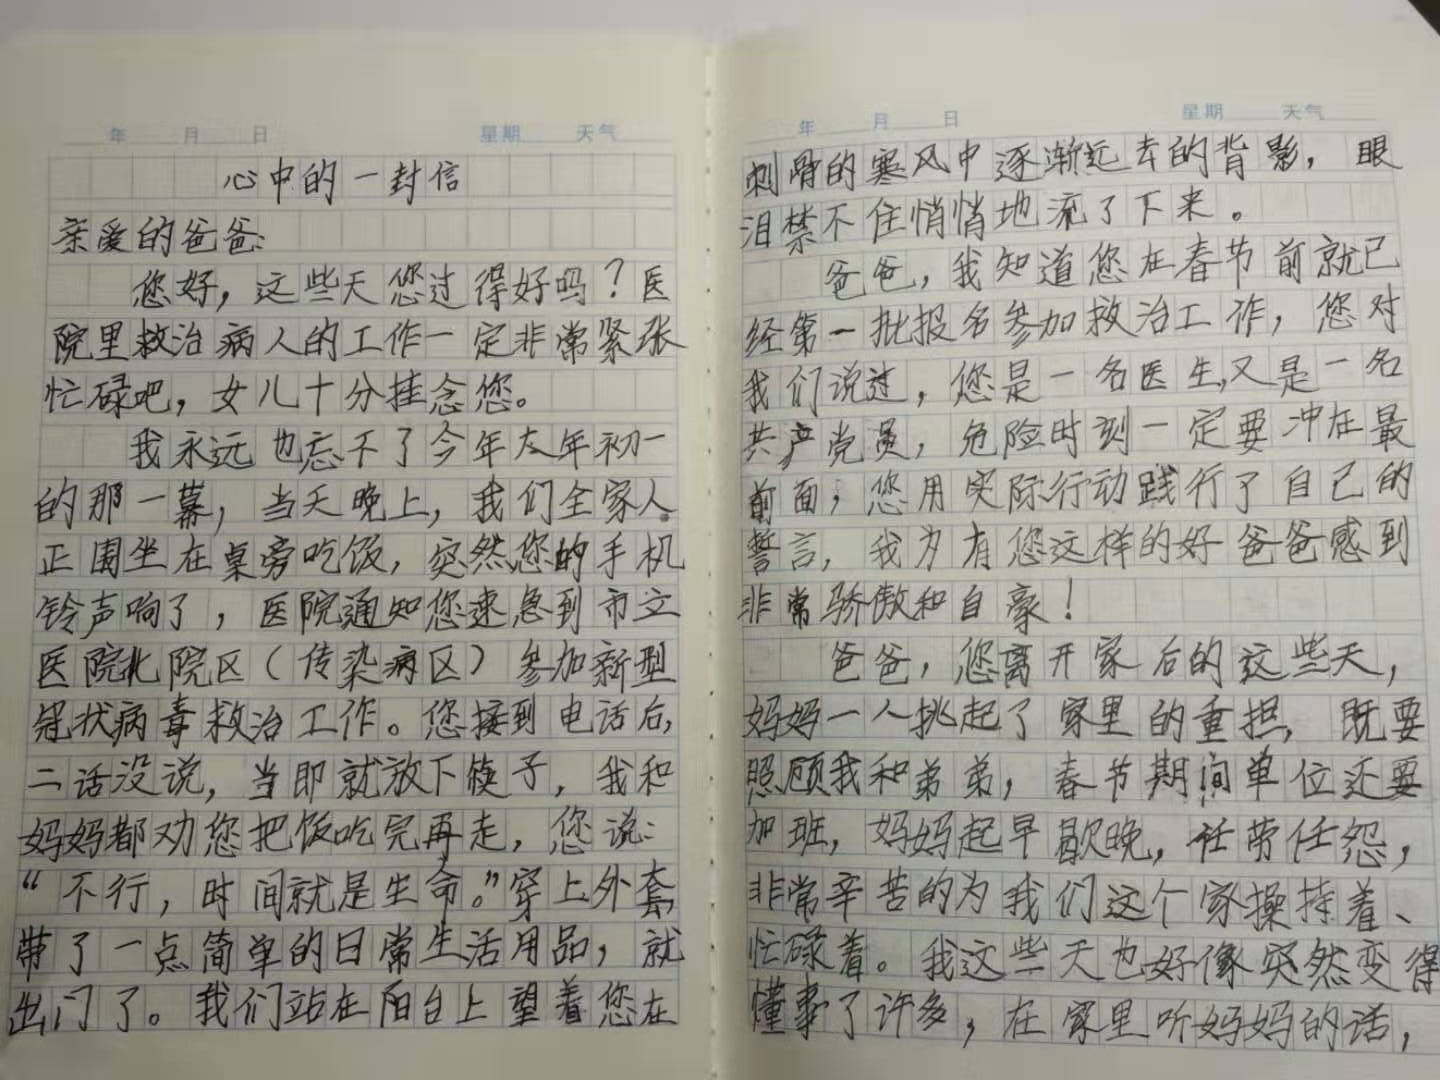 年 月 日 星期 天气
心中的一封信
亲爱的爸爸:
您好，这些天您过得好吗？医
院里救治病人的工作一定非常紧张
忙碌吧，女儿十分挂念您。
我永远也忘不了今年大年初一
的那一幕，当天晚上，我们全家人
正围坐在桌旁吃饭，突然您的手机
铃声响了，医院通知您速急到市立
医院北院区（传染病区）参加新型
冠状病毒救治工作。您接到电话后，
二话没说，当即就放下筷子，我和
妈妈都劝您把饭吃完再走，您说：
“不行，时间就是生命。”穿上外套，
带了一点简单的日常生活用品，就
出门了。我们站在阳台上望着您在
年 月 日 星期 天气
刺骨的寒风中逐渐远去的背影，眼
泪禁不住悄悄地流了下来。
爸爸，我知道您在春节前就已
经第一批报名参加救治工作，您对
我们说过，您是一名医生，又是一名
共产党员，危险时刻一定要冲在最
前面，您用实际行动践行了自己的
誓言，我为有您这样的好爸爸感到
非常骄傲和自豪！
爸爸，您离开家后的这些天，
妈妈一人挑起了家里的重担，既要
照顾我和弟弟，春节期间单位还要
加班，妈妈起早歇晚，任劳任怨，
非常辛苦的为我们这个家操持着、
忙碌着。我这些天也好像突然变得
懂事了许多，在家里听妈妈的话，